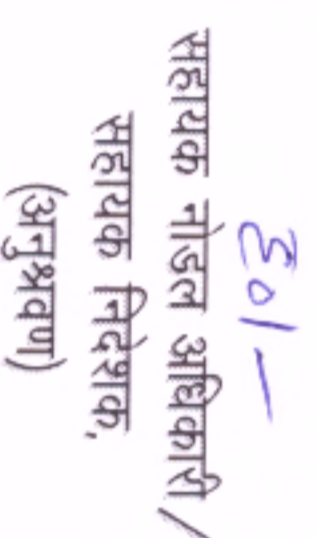 ह०/-
सहायक नोडल अधिकारी/
सहायक निदेशक,
(अनुश्रवण)